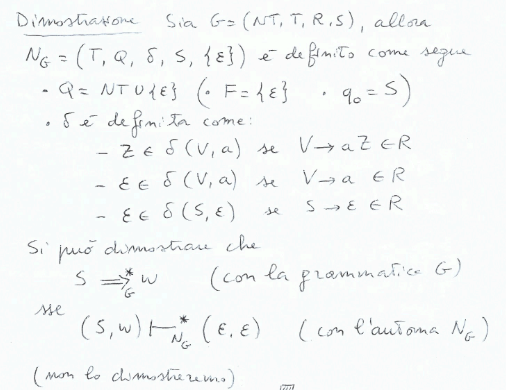 Dimostrazione Sia G = (NT, T, R, S), allora
N_G = (T, Q, δ, S, {ε}) è definito come segue
• Q = NT ∪ {ε} (• F = {ε} • q₀ = S)
• δ è definita come:
- Z ∈ δ(V, a) se V → aZ ∈ R
- ε ∈ δ(V, a) se V → a ∈ R
- ε ∈ δ(S, ε) se S → ε ∈ R
Si può dimostrare che
S ⇒*_G w (con la grammatica G)
sse
(S, w) ⊢*_{N_G} (ε, ε) (con l'automa N_G)
(non lo dimostreremo)